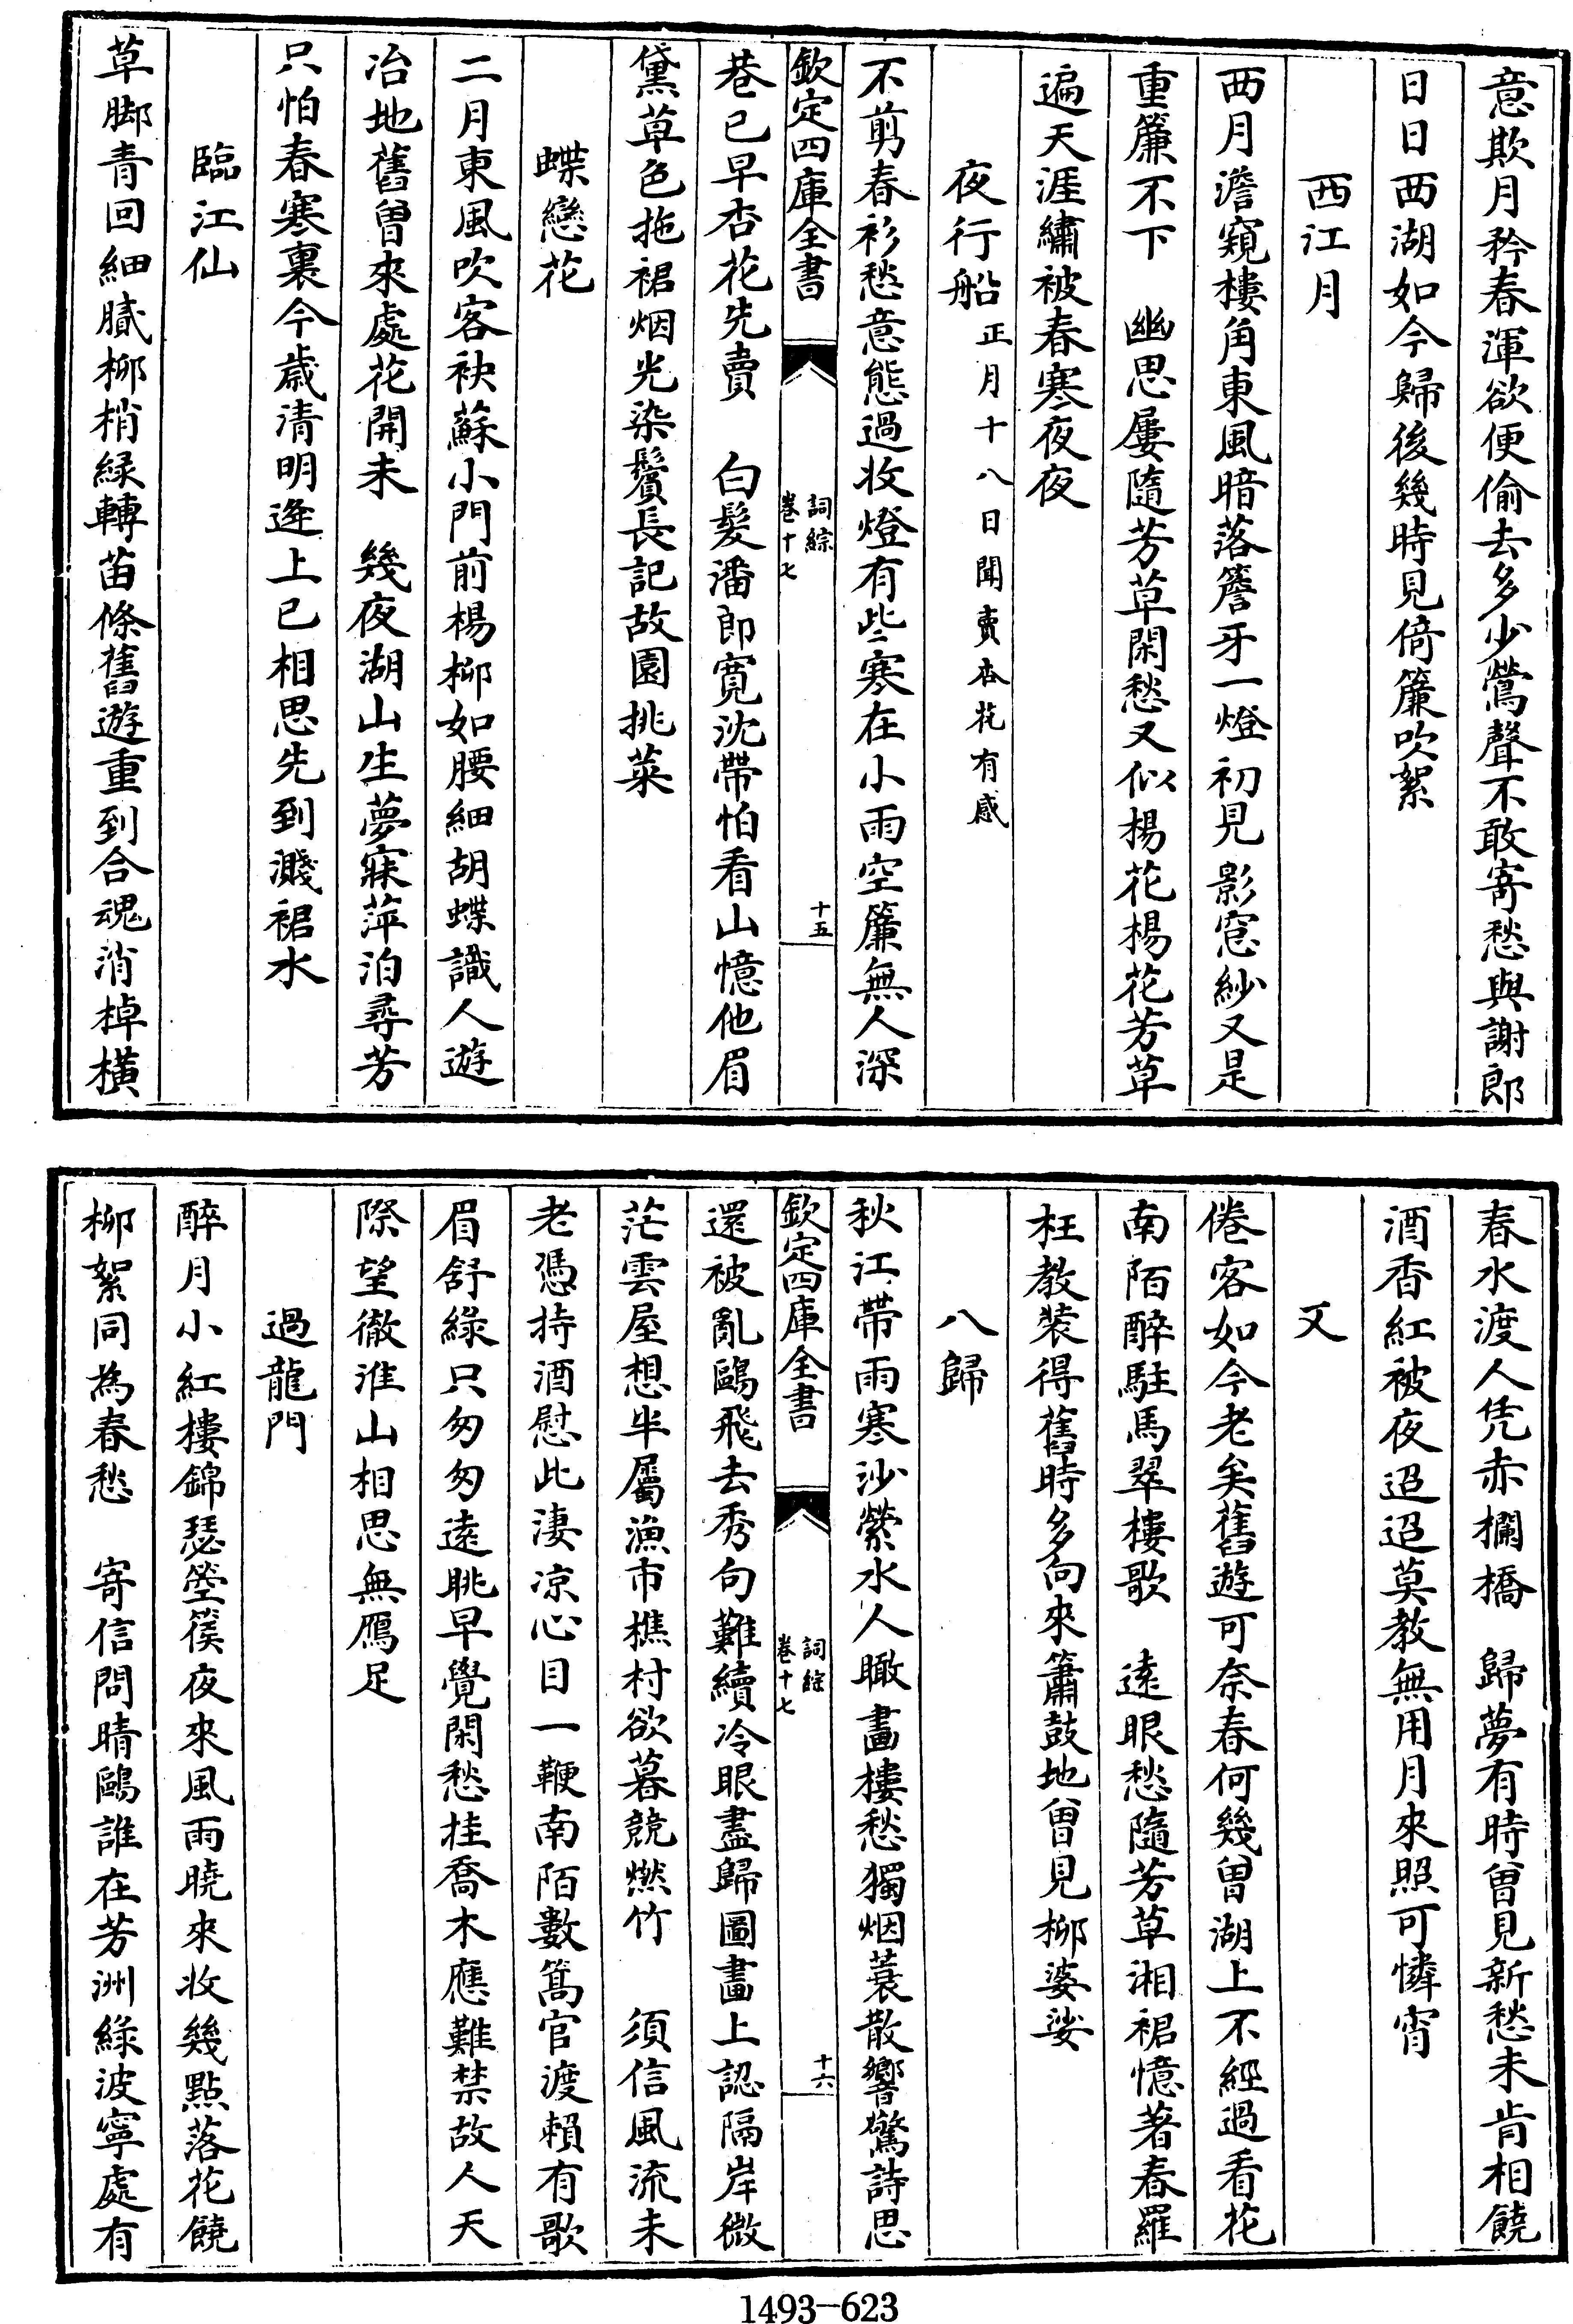 意欺月矜春渾欲便偷去多少鶯聲不敢寄愁與謝郎
日日西湖如今歸後幾時見倚簾吹絮
西江月
西月澹窺樓角東風暗落簷牙一燈初見影窓紗又是
重簾不下　幽思屢隨芳草閑愁又似楊花楊花芳草
遍天涯繡被春寒夜夜
夜行船正月十八日聞賣杏花有感
不剪春衫愁意態過收燈有些寒在小雨空簾無人深
欽定四庫全書
詞綜
卷十七
十五
巷已早杏花先賣　白髮潘郎寛沈帶怕看山憶他眉
黛草色拖裙烟光染鬢長記故園挑菜
蝶戀花
二月東風吹客袂蘇小門前楊柳如腰細胡蝶識人遊
冶地舊曽來處花開未　幾夜湖山生夢寐萍泊尋芳
只怕春寒裏今歳清明逢上已相思先到濺裙水
臨江仙
草脚青回細膩柳梢緑轉苗條舊遊重到合魂消棹橫
春水渡人凭赤欄橋　歸夢有時曽見新愁未肯相饒
酒香紅被夜迢迢莫教無用月來照可憐宵
又
倦客如今老矣舊遊可奈春何幾曽湖上不經過看花
南陌醉駐馬翠樓歌　遠眼愁隨芳草湘裙憶著春羅
枉教裝得舊時多向來簫鼓地曽見柳婆娑
八歸
秋江帶雨寒沙縈水人瞰畫樓愁獨烟蓑散響驚詩思
欽定四庫全書
詞綜
卷十七
十六
還被亂鷗飛去秀句難續冷眼盡歸圖畫上認隔岸微
茫雲屋想半屬漁市樵村欲暮競燃竹　須信風流未
老憑持酒慰此淒凉心目一鞭南陌數篙官渡頼有歌
眉舒緑只匆匆遠眺早覺閑愁挂喬木應難禁故人天
際望徹淮山相思無鴈足
過龍門
醉月小紅樓錦瑟箜篌夜來風雨曉來收幾點落花饒
柳絮同為春愁　寄信問晴鷗誰在芳洲緑波寧處有
1493-623